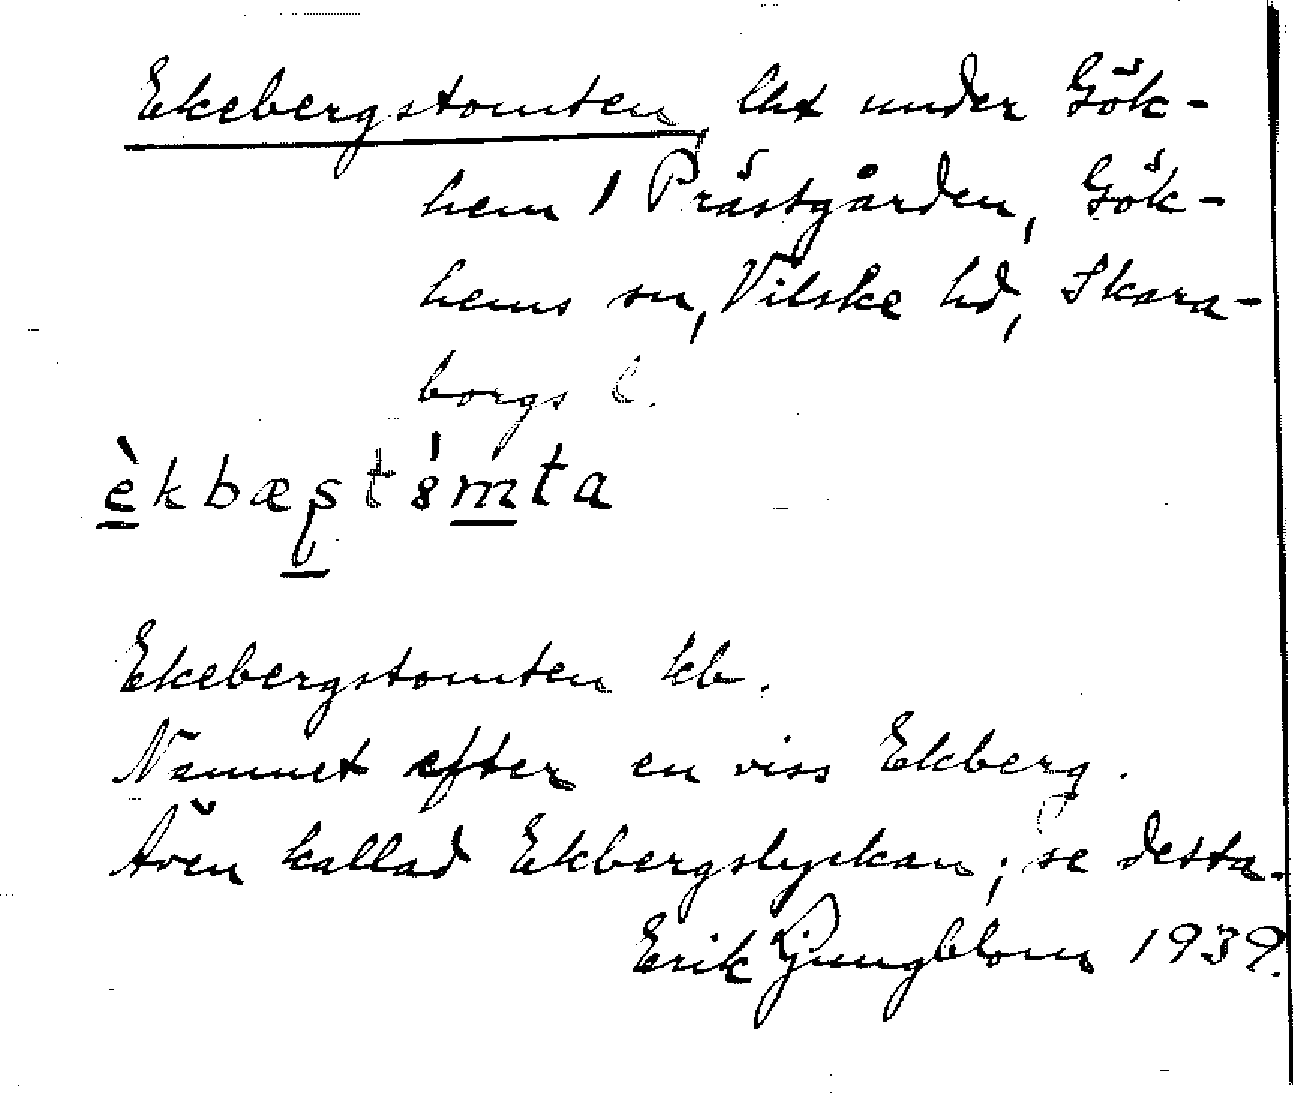 Ekebergstomten, lht under Gök-
hem 1 Prästgården, Gök-
hems sn, Vilske hd, Skara-
borgs l.
Ekebergstomten kb.
Namnet efter en viss Ekberg.
Även kallad Ekbergslyckan; se detta.
Erik Ljungblom 1939.